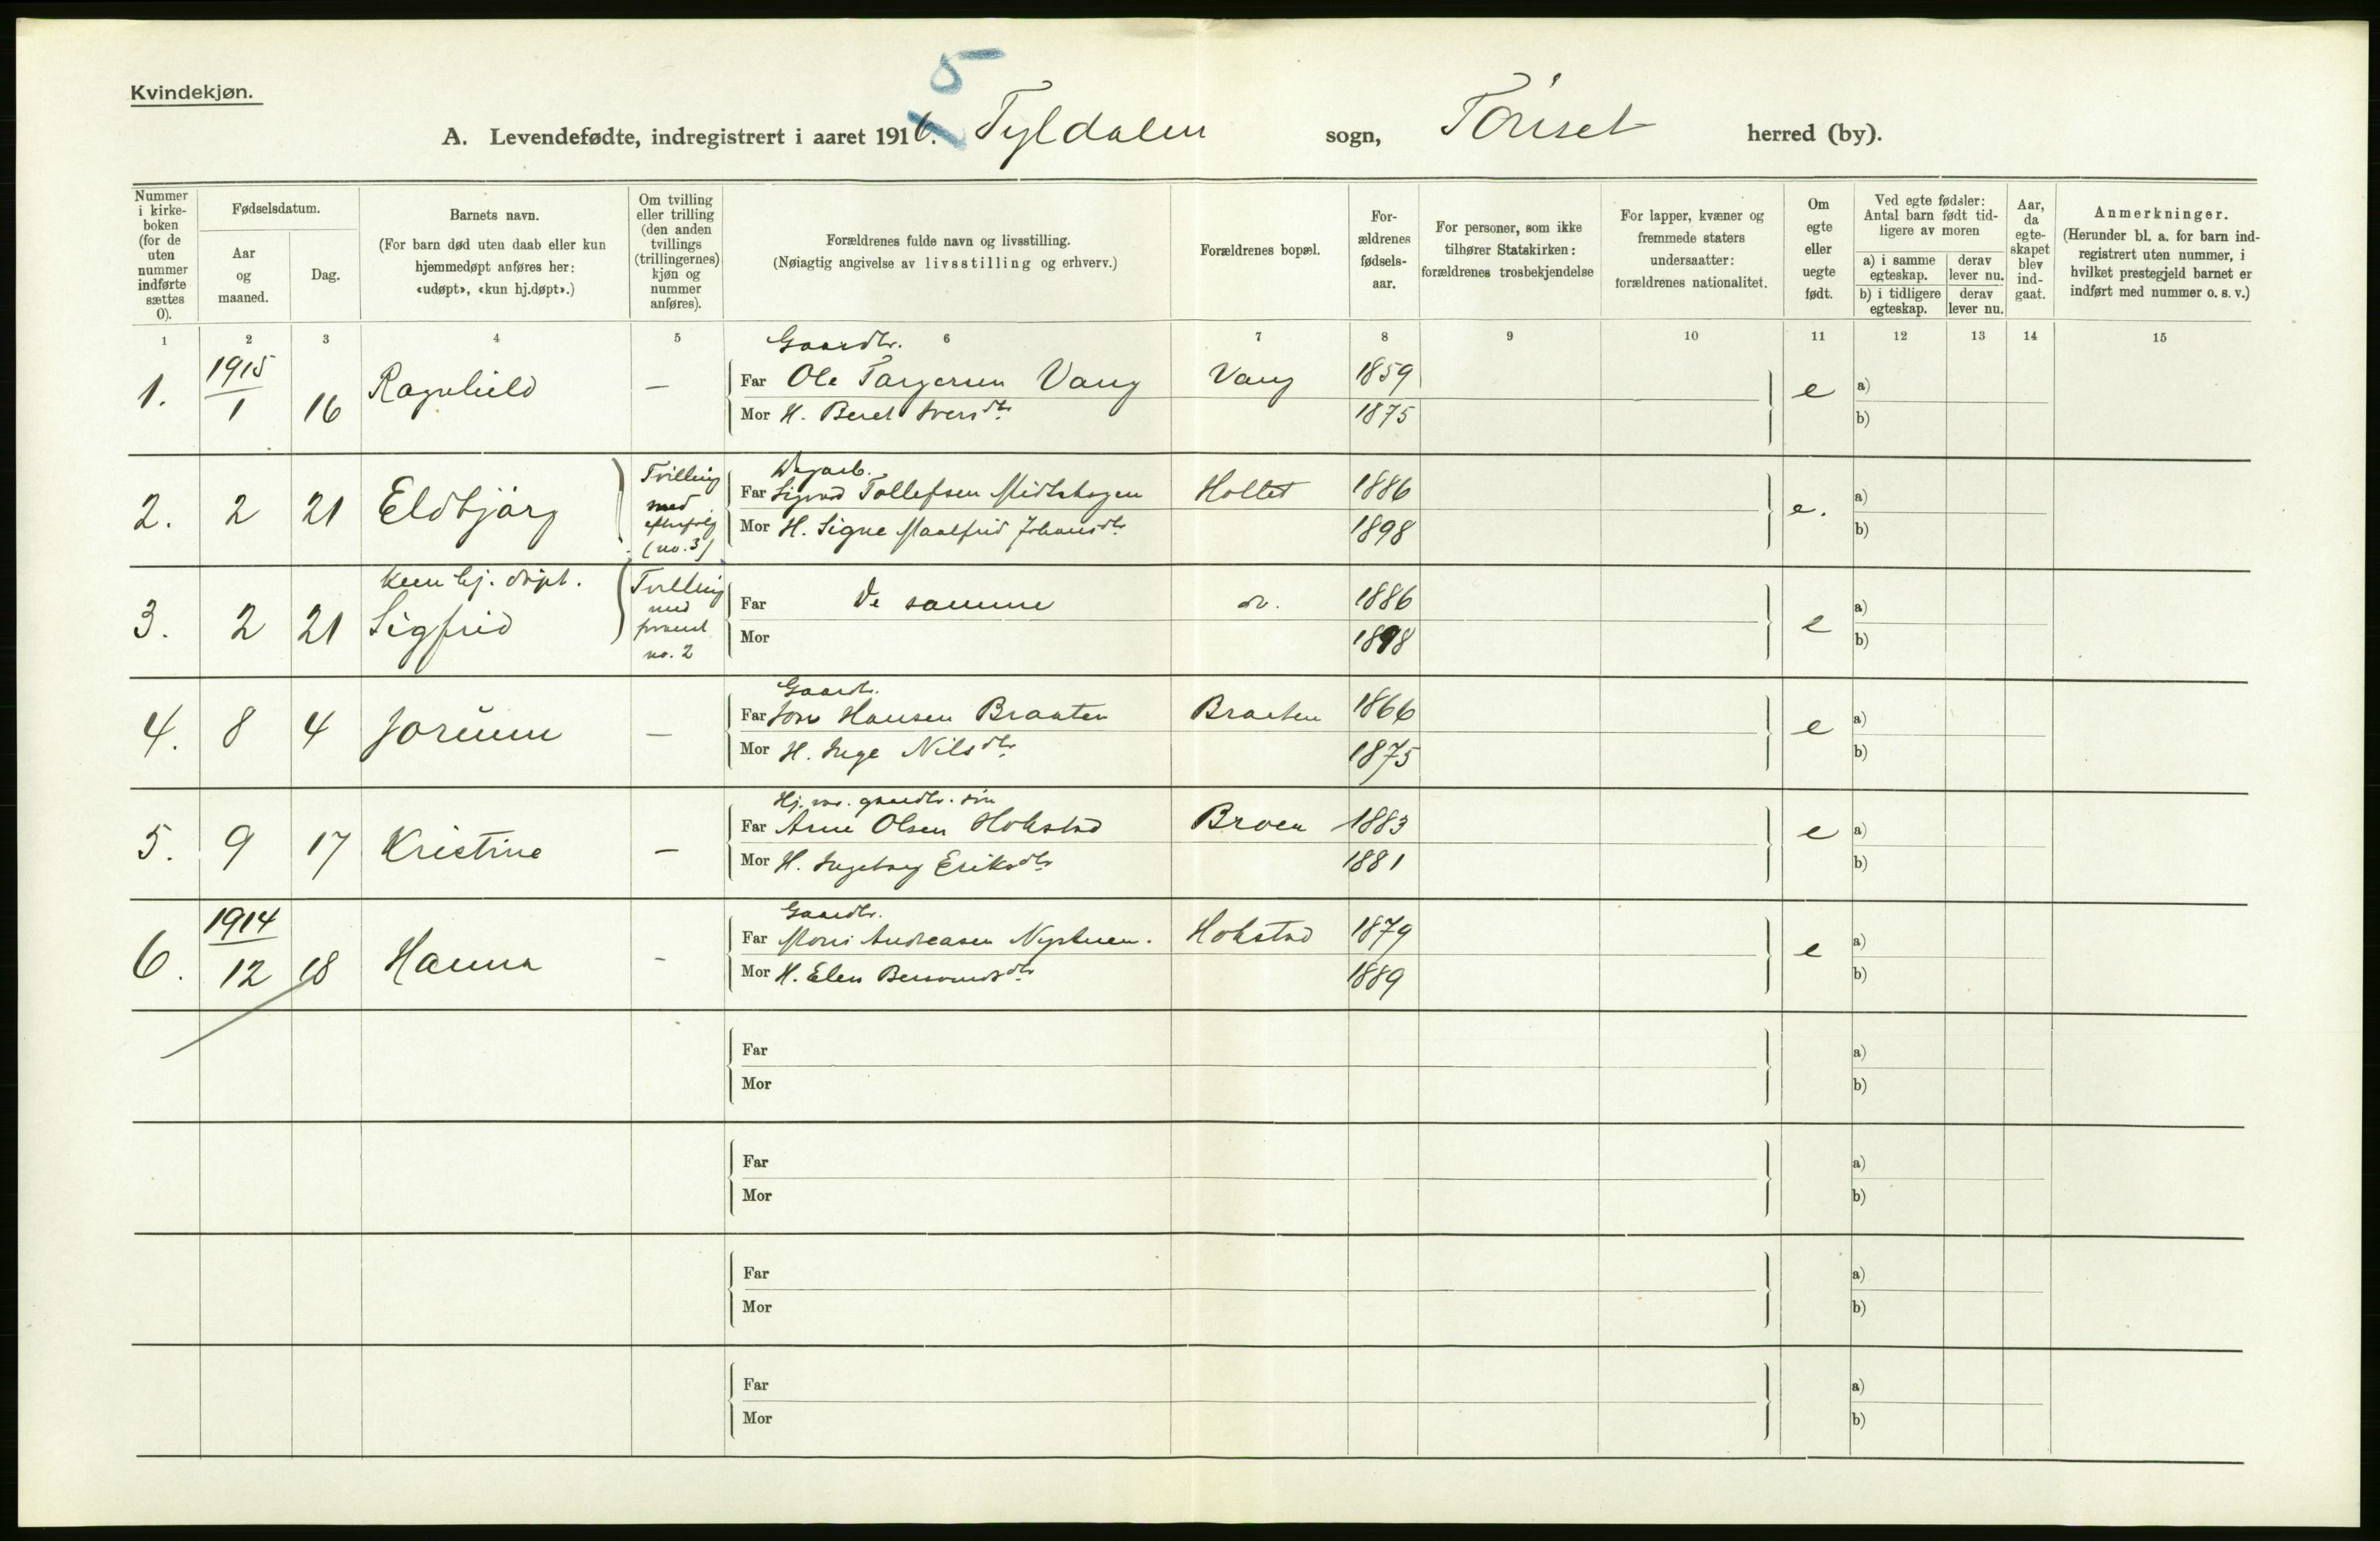 Kvindekjøn.
5
A. Levendefødte, indregistrert i aaret 1916. Tyldalen sogn, Tönset herred (by).
Nummer i kirke-boken (for de uten nummer indførte sættes 0).
Fødselsdatum.
Aar og maaned.
Dag.
Barnets navn.
(For barn død uten daab eller kun hjemmedøpt anføres her: «udøpt», «kun hj.døpt».)
Om tvilling eller trilling (den anden tvillings (trillingernes) kjøn og nummer anføres).
Forældrenes fulde navn og livsstilling.
(Nøiagtig angivelse av livsstilling og erhverv.)
Forældrenes bopæl.
For-ældrenes fødsels-aar.
For personer, som ikke tilhører Statskirken: forældrenes trosbekjendelse
For lapper, kvæner og fremmede staters undersaatter: forældrenes nationalitet.
Om egte eller uegte født.
Ved egte fødsler: Antal barn født tid-ligere av moren
a) i samme egteskap.
derav lever nu.
b) i tidligere egteskap.
derav lever nu.
Aar, da egte-skapet blev ind-gaat.
Anmerkninger.
(Herunder bl. a. for barn ind-registrert uten nummer, i hvilket prestegjeld barnet er indført med nummer o. s. v.)
1 2 3 4 5 6 7 8 9 10 11 12 13 14 15
Gaardbr.
1. 1915 1 16 Ragnhild — Far Ole Vang Vang 1859 e a)
Mor H. Beret 1875 b)
2. 2 21 Eldbjørg Tvilling med efterfølg (no. 3) Far Sigurd Tollefsen Hollet 1886 e. a)
Mor H. Signe Johansdtr 1898 b)
kun hj. døpt.
3. 2 21 Sigfrid Tvilling med no. 2 Far De samme do. 1886 e a)
Mor 1898 b)
Gaardbr.
4. 8 4 Jorunn — Far Jon Hansen Braaten Braaten 1866 e a)
Mor H. Inge Nilsdtr 1875 b)
gaardbr. søn
5. 9 17 Kristine — Far Arne Olsen Hokstad Broen 1883 e a)
Mor H. Ingeborg Eriksdtr 1881 b)
Gaardbr.
6. 1914 12 18 Hanna - Far Andreasen Nystuen. Hokstad 1879 e a)
Mor H. Elen 1889 b)
Far a)
Mor b)
Far a)
Mor b)
Far a)
Mor b)
Far a)
Mor b)